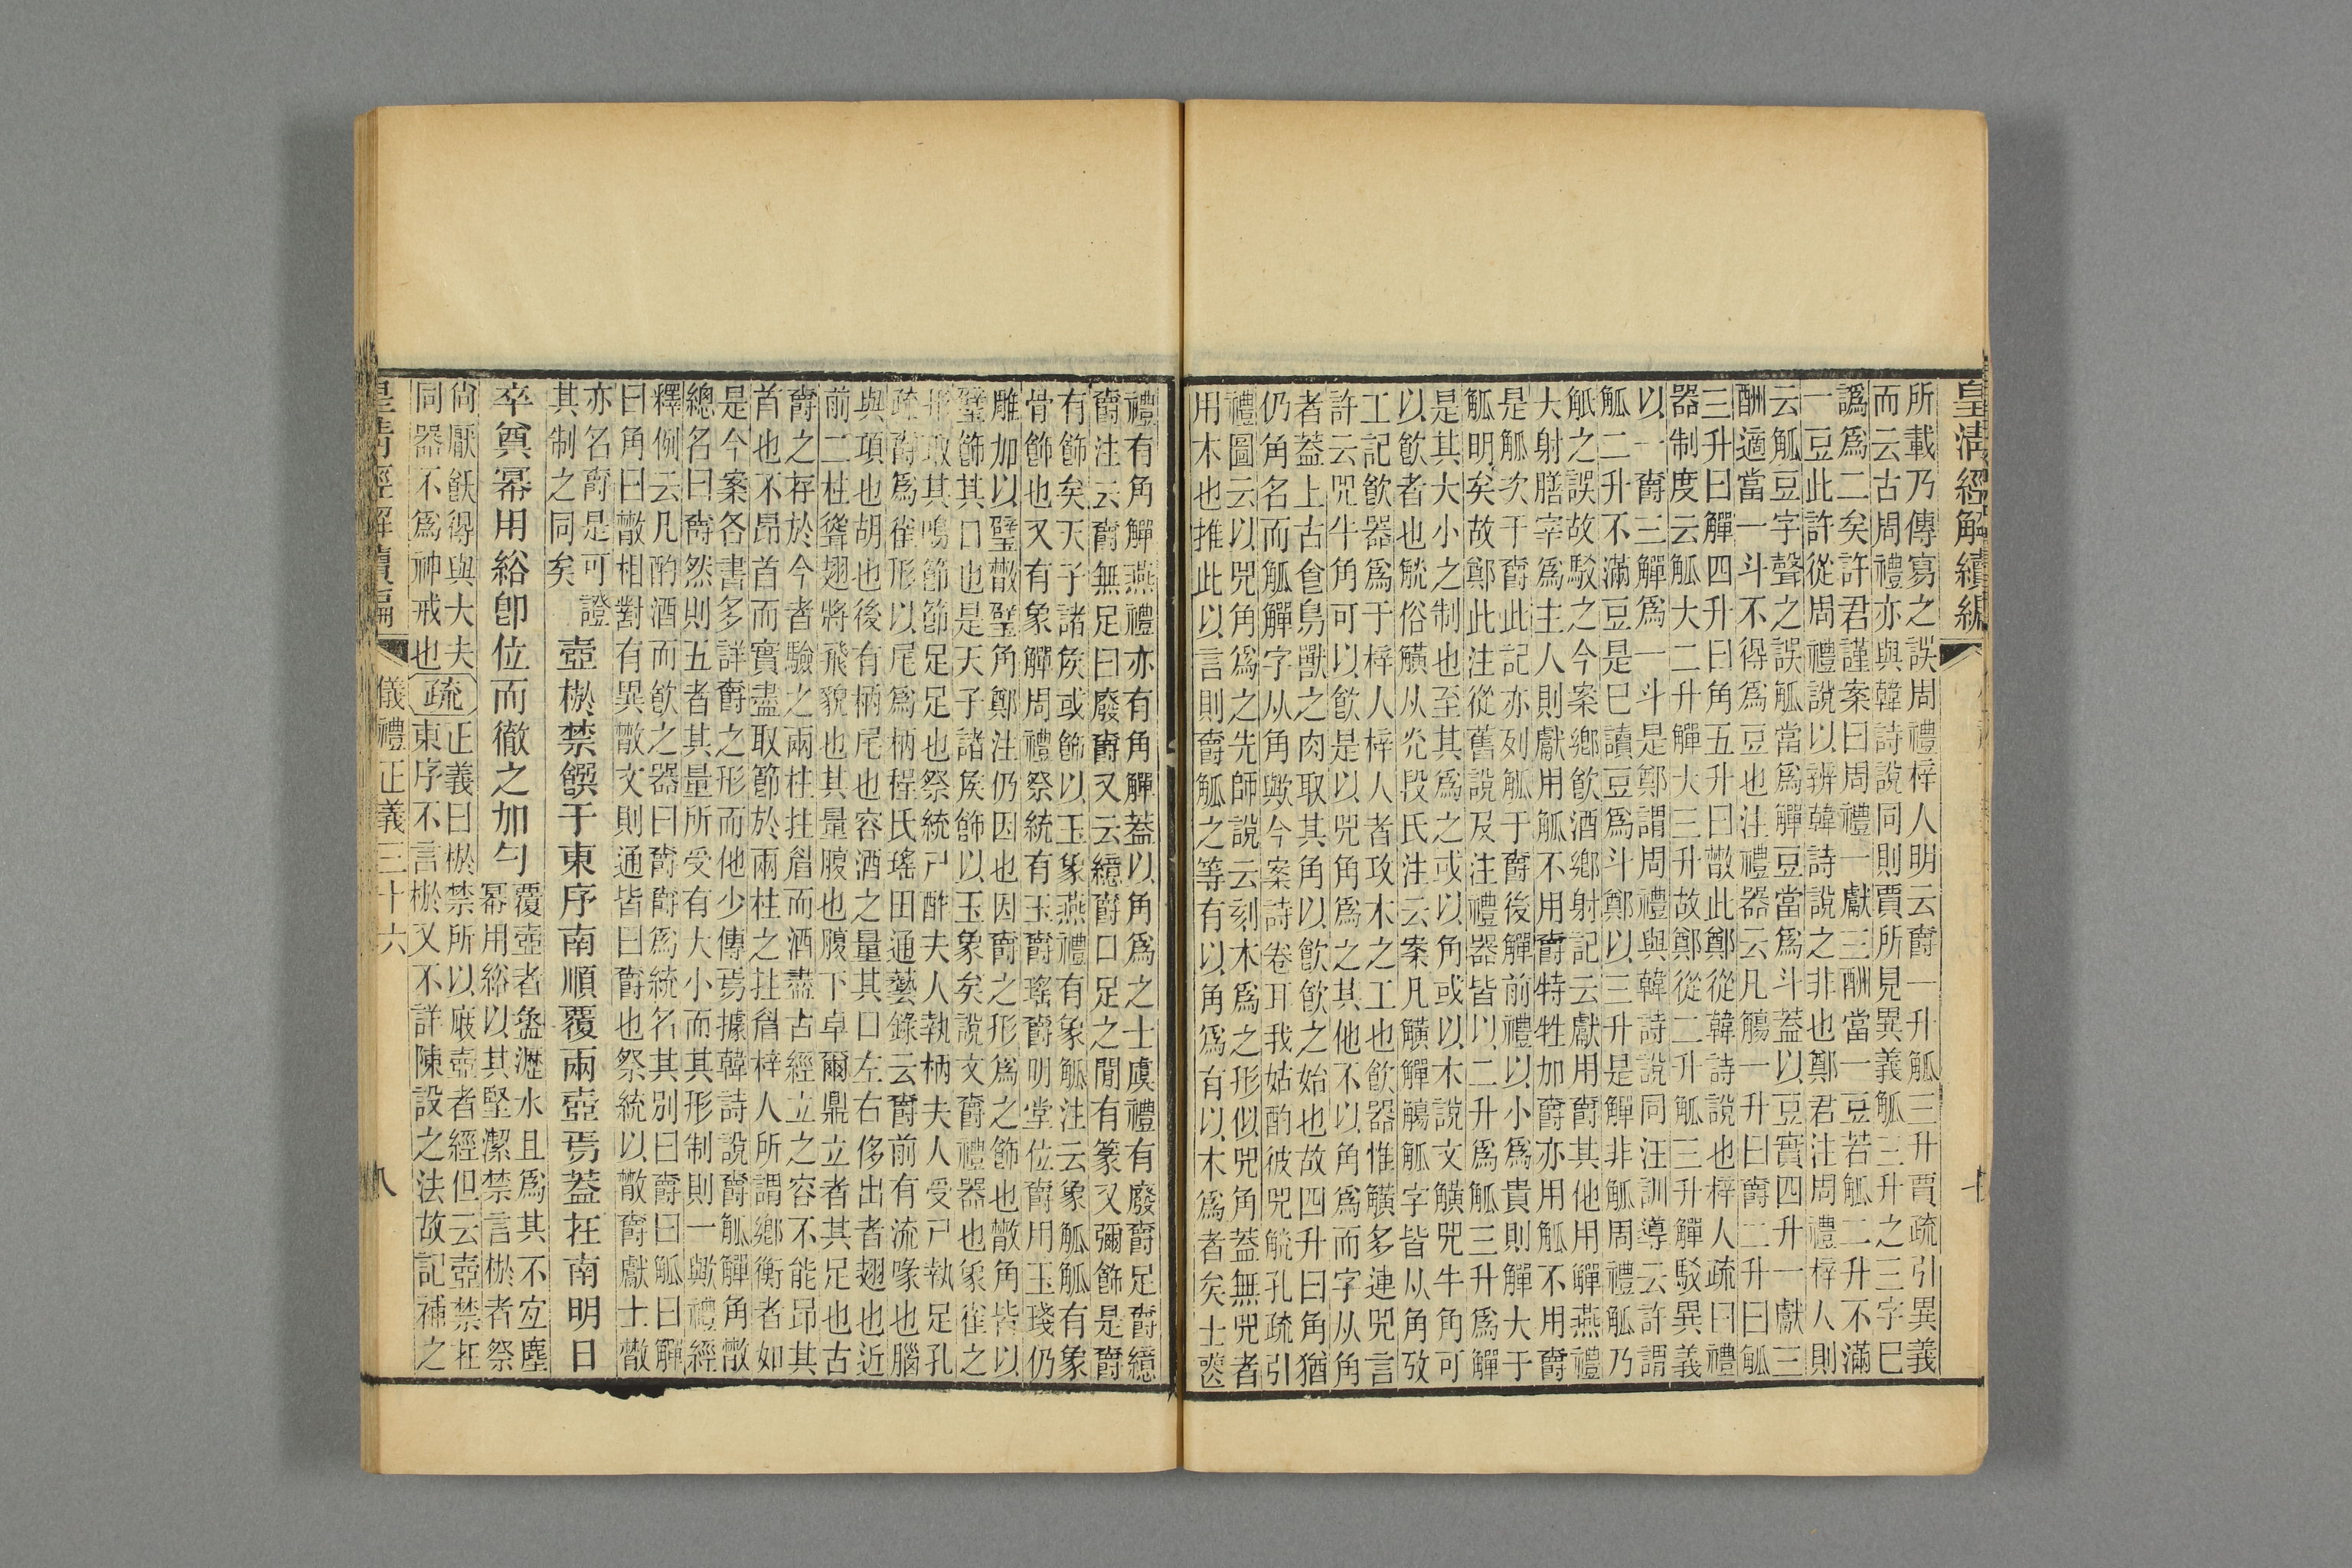 皇清經解續編
所載乃傳寫之誤周禮梓人明云爵一升觚三升賈疏引異義
而云古周禮亦與韓詩說同則賈所見異義觚三升之三字巳
譌爲二矣許君謹案曰周禮一獻三酬當一豆若觚二升不滿
一豆此許從周禮說以辨韓詩說之非也鄭君注周禮梓人則
云觚豆字聲之誤觚當爲觶豆當爲斗蓋以豆實四升一獻三
酬適當一斗不得爲豆也注禮器云凡觴一升曰爵二升曰觚
三升曰觶四升曰角五升曰散此鄭從韓詩說也梓人疏曰禮
器制度云觚大二升觶大三升故鄭從二升觚三升觶駁異義
以一爵三觶爲一斗是鄭謂周禮與韓詩說同汪訓導云許謂
觚二升不滿豆是巳讀豆爲斗鄭以三升是觶非觚周禮觚乃
觗之誤故駁之今案鄉飲酒鄉射記云獻用爵其他用觶燕禮
大射膳宰爲主人則獻用觚不用爵特牲加爵亦用觚不用爵
是觚次于爵此記亦列觚于爵後觶前禮以小爲貴則觶大于
觚明矣故鄭此注從舊說及注禮器皆以二升爲觚三升爲觶
是其大小之制也至其爲之或以角或以木說文觵兕牛角可
以飲者也觥俗觵从光段氏注云案凡觵觶觴觚字皆从角攷
工記飲器爲于梓人梓人者攻木之工也飲器惟觵多連兕言
許云兕牛角可以飲是以兕角爲之其他不以角爲而字从角
者蓋上古食鳥獸之肉取其角以飲飲之始也故四升曰角猶
仍角名而觚觶字从角歟今案詩卷耳我姑酌彼兕觥孔疏引
禮圖云以兕角爲之先師說云刻木爲之形似兕角蓋無兕者
用木也推此以言則爵觚之等有以角爲有以木爲者矣士喪
禮有角觶燕禮亦有角觶蓋以角爲之士虞禮有廢爵足爵繶
爵注云爵無足曰廢爵又云繶爵口足之閒有篆又彌飾是爵
有飾矣天子諸矦或飾以玉象燕禮有象觚注云象觚觚有象
骨飾也又有象觶周禮祭統有玉爵瑤爵明堂位爵用玉琖仍
雕加以璧散璧角鄭注仍因也因爵之形爲之飾也散角皆以
璧飾其口也是天子諸矦飾以玉象矣說文爵禮器也象雀之
形取其鳴節節足足也祭統尸酢夫人執柄夫人受尸執足孔
疏爵爲雀形以尾爲柄程氏瑤田通藝錄云爵前有流喙也腦
與項也胡也後有柄尾也容酒之量其口左右侈出者翅也近
前二柱聳翅將飛貌也其量腹也腹下卓爾鼎立者其足也古
爵之存於今者驗之兩柱拄眉而酒盡古經立之容不能昂其
首也不昂首而實盡取節於兩柱之拄眉梓人所謂鄉衡者如
是今案各書多詳爵之形而他少傳焉據韓詩說爵觚觶角散
總名曰爵然則五者其量所受有大小而其形制則一歟禮經
釋例云凡酌酒而飲之器曰爵爵爲統名其別曰爵曰觚曰觶
曰角曰散相對有異散文則通皆曰爵也祭統以散爵獻士散
亦名爵是可證
其制之同矣
壺棜禁饌于東序南順覆兩壺焉蓋在南明日
卒奠冪用綌卽位而徹之加勺
覆壺者盝瀝水且爲其不宜塵
冪用綌以其堅潔禁言棜者祭
尙厭飫得與大夫
同器不爲神戒也
疏
正義曰棜禁所以庪壺者經但云壺禁在
東序不言棜又不詳陳設之法故記補之
皇清經解續編
儀禮正義三十六
八